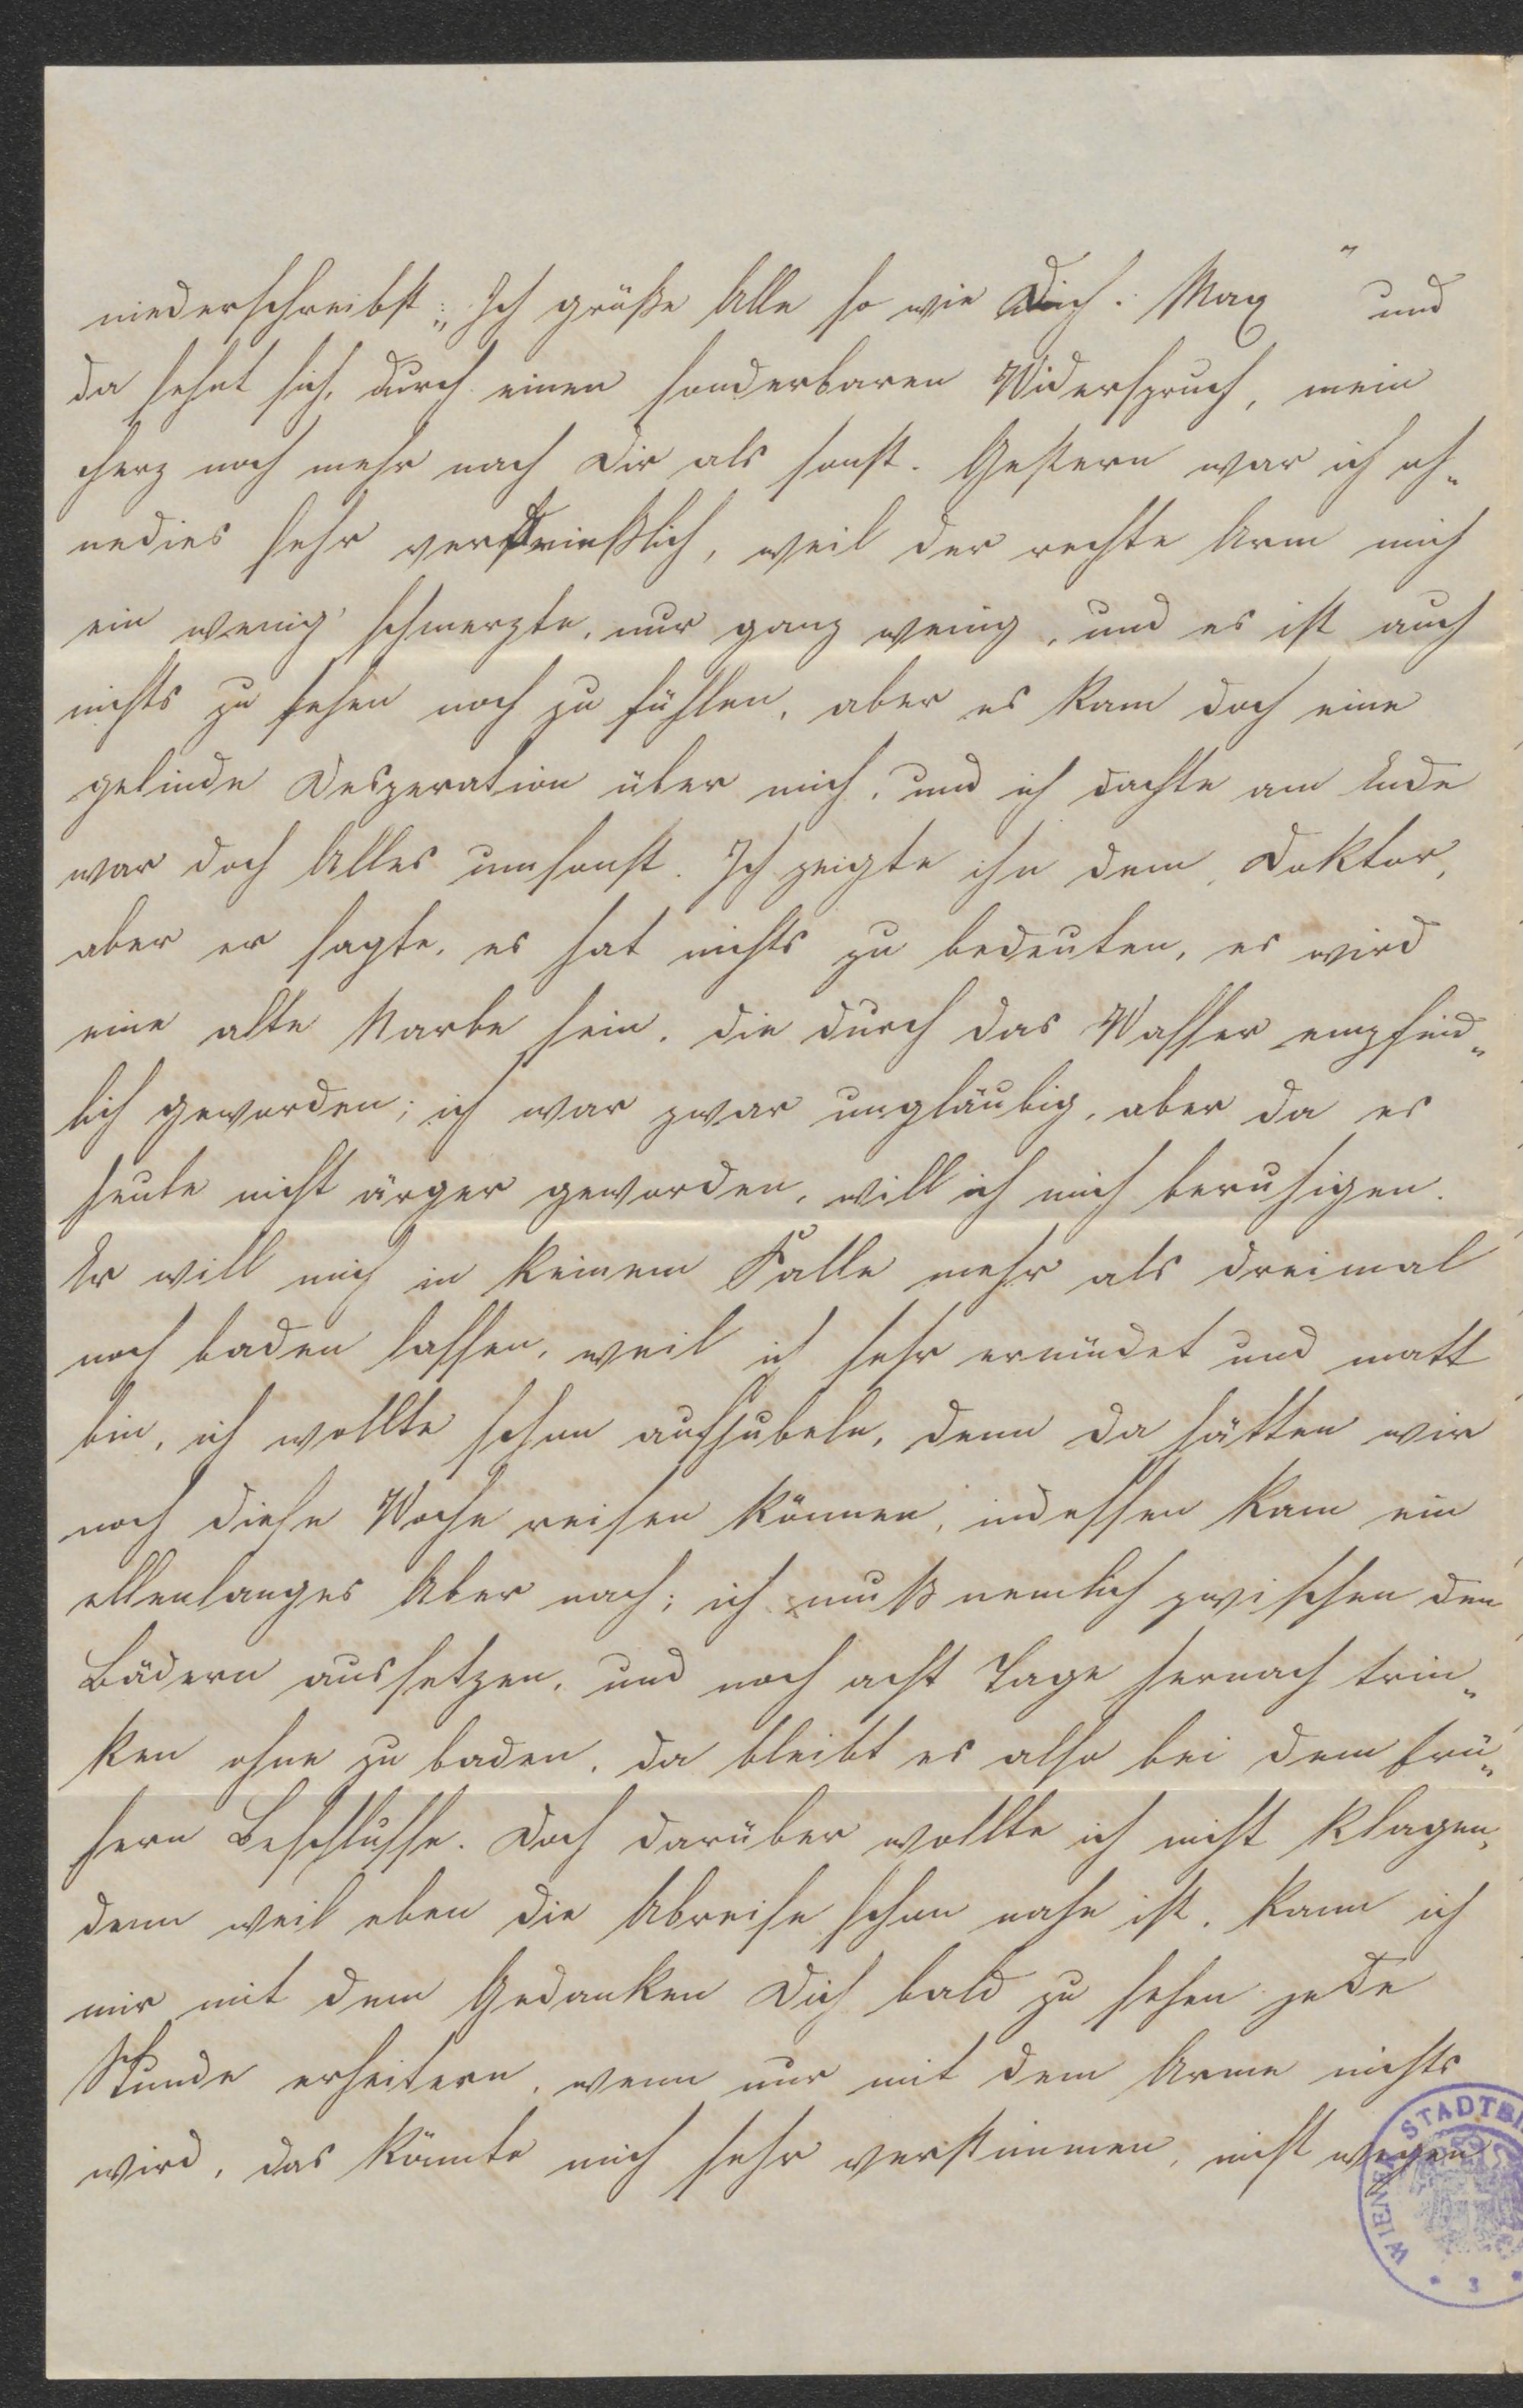 niederschreibst: „Ich grüße Alle so wie Dich. Max“ und
da sehnt sich, durch einen sonderbaren Widerspruch, mein
Herz noch mehr nach Dir als sonst. Gestern war ich oh-
nedies sehr verdrießlich, weil der rechte Arm mich
ein wenig schmerzte, nur ganz wenig, und es ist auch
nichts zu sehen noch zu fühlen, aber es kam doch eine
gelinde Desperation über mich, und ich dachte am Ende
war doch Alles umsonst. Ich zeigte ihn dem Doktor,
aber er sagte, es hat nichts zu bedeuten, es wird
eine alte Narbe sein, die durch das Wasser empfind-
lich geworden; ich war zwar ungläubig, aber da es
heute nicht ärger geworden, will ich mich beruhigen.
Er will mich in keinem Falle mehr als dreimal
noch baden lassen, weil ich sehr ermüdet und matt
bin, ich wollte schon aufjubeln, denn da hätten wir
noch diese Woche reisen können, indessen kam ein
ellenlanges Aber nach; ich muß nemlich zwischen den
Bädern aussetzen, und noch acht Tage hernach trin-
ken ohne zu baden, da bleibt es also bei dem frü-
hern Beschlusse. Doch darüber wollte ich nicht klagen,
denn weil eben die Abreise schon nahe ist, kann ich
mir mit dem Gedanken Dich bald zu sehen jede
Stunde erheitern, wenn nur mit dem Arme nichts
wird, das könnte mich sehr verstimmen, nicht wegen
WIENER STADTBI
3